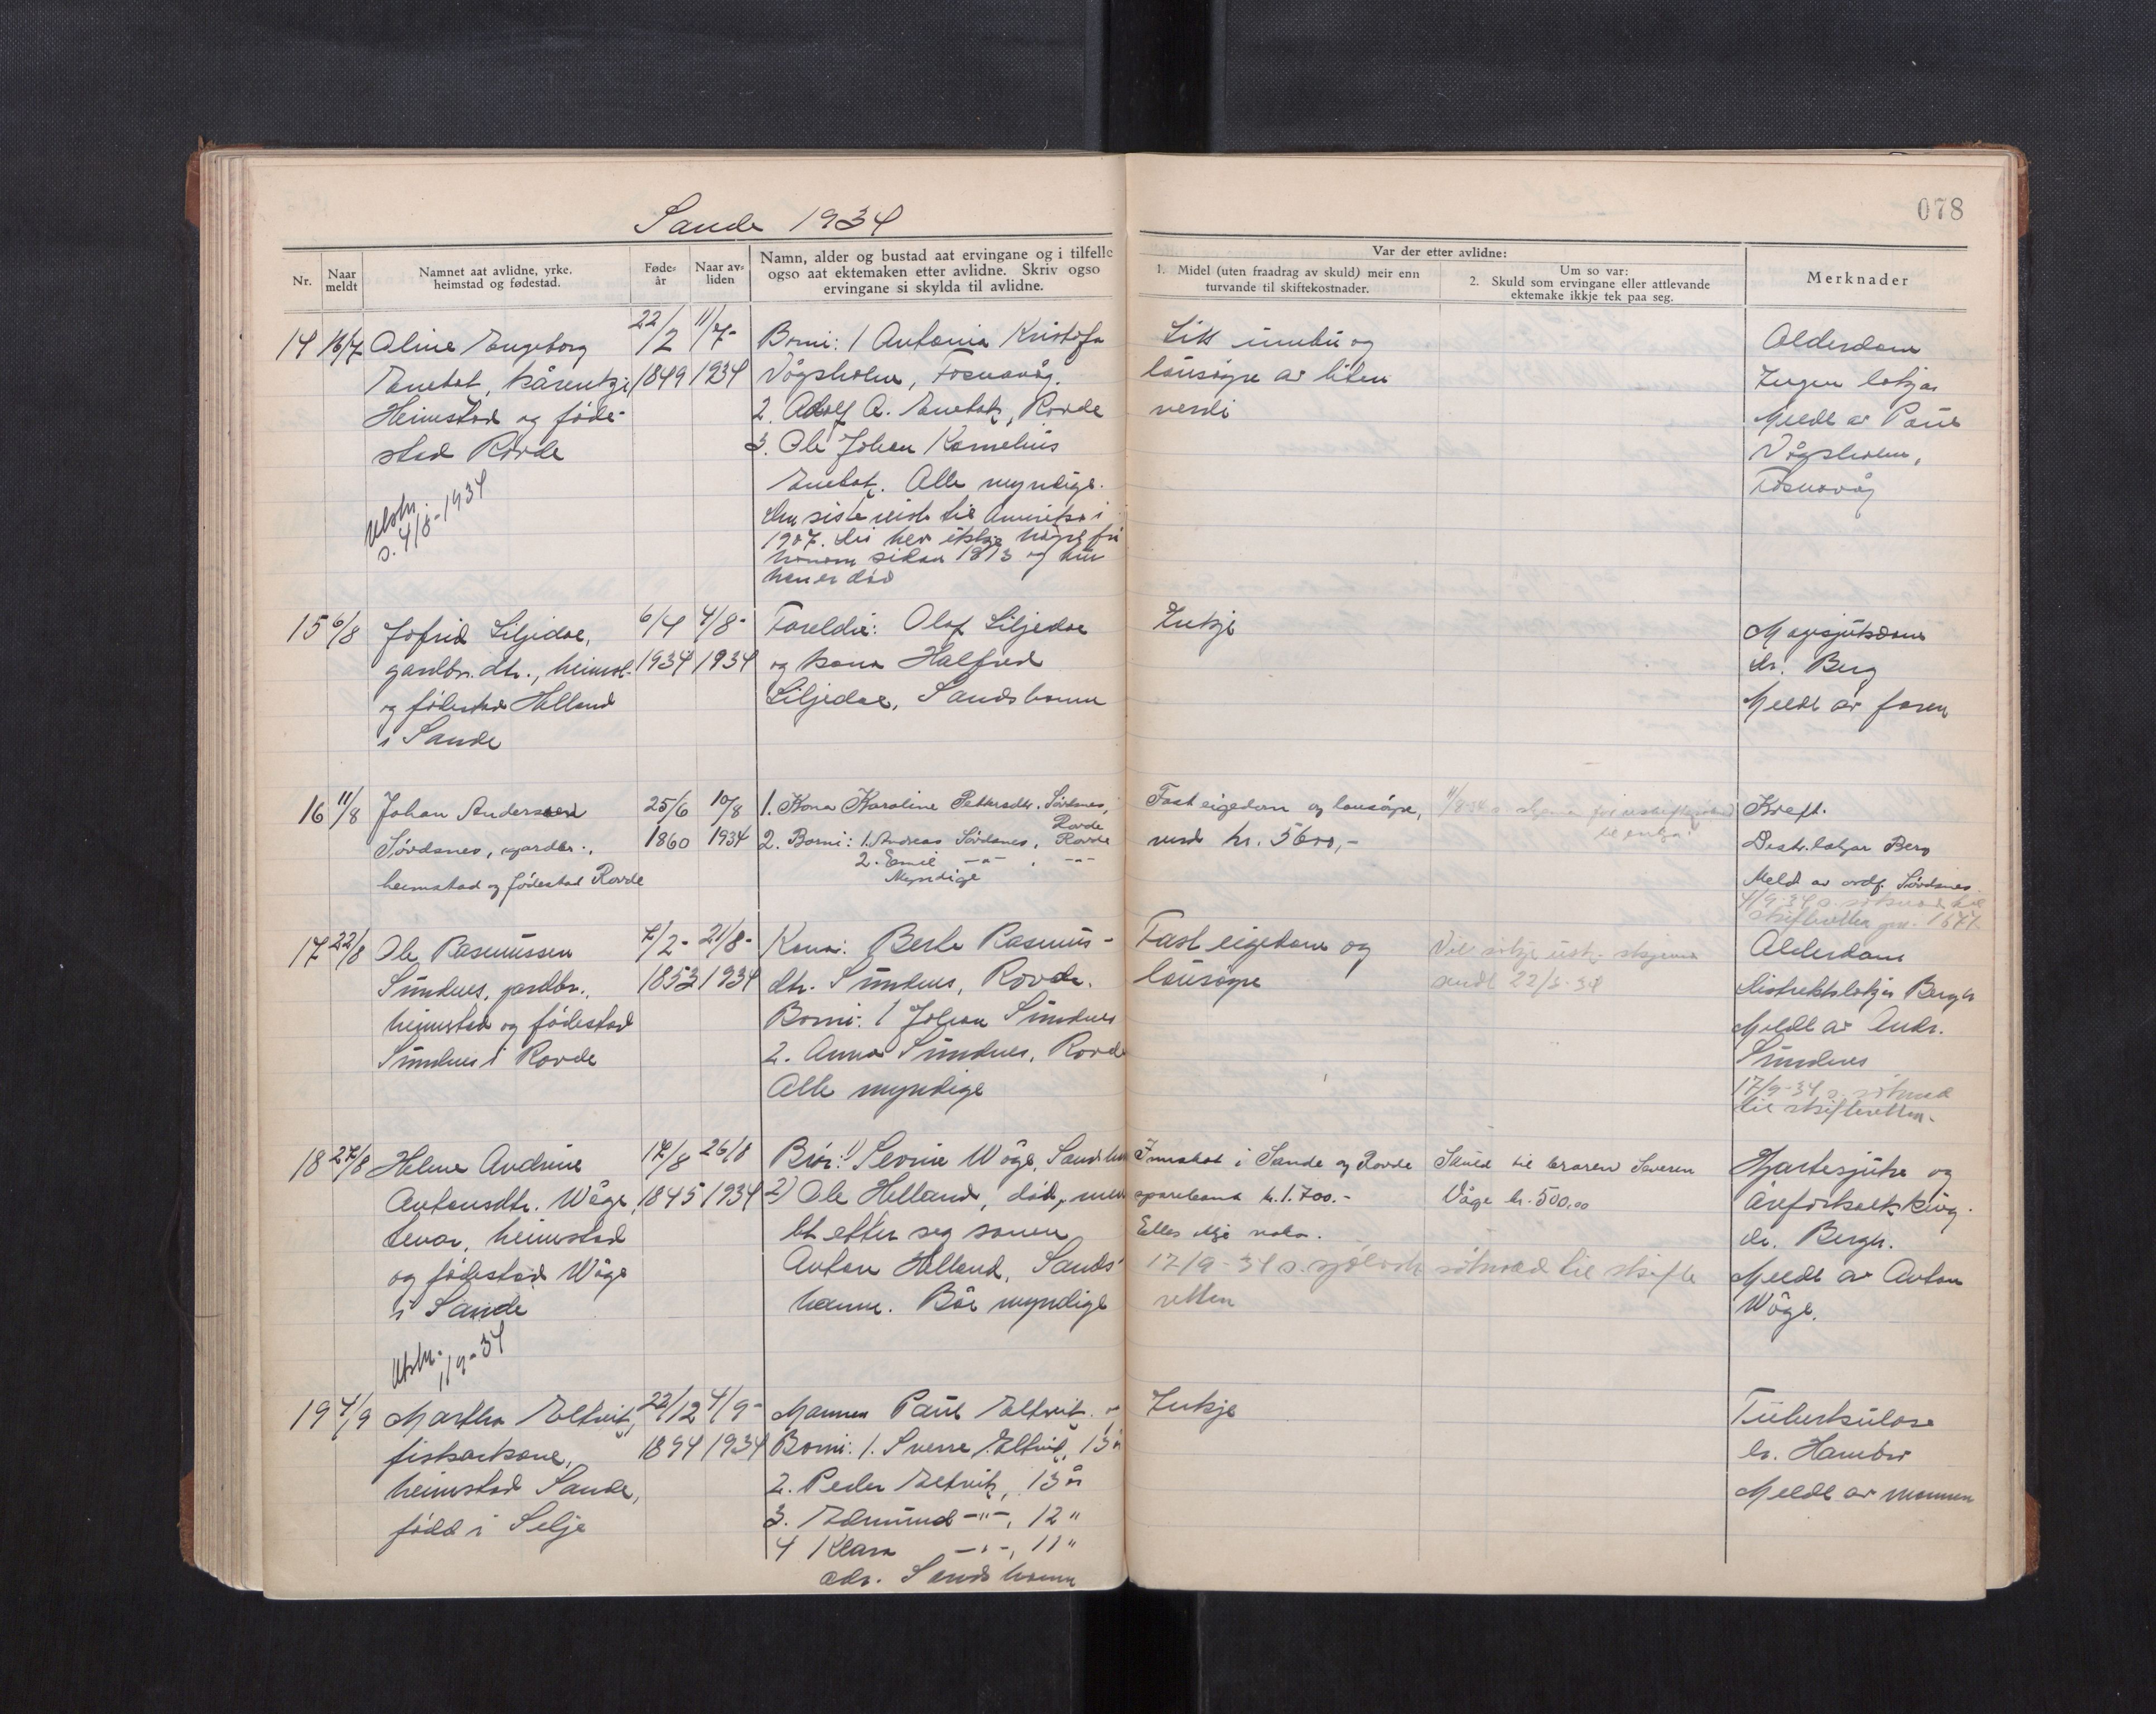 078
Sande 1934
Nr.
Naar meldt
Namnet aat avlidne, yrke, heimstad og fødestad.
Føde-år
Naar av-liden
Namn, alder og bustad aat ervingane og i tilfelle
ogso aat ektemaken etter avlidne. Skriv ogso
ervingane si skylda til avlidne.
Var der etter avlidne:
1. Midel (uten fraadrag av skuld) meir enn
turvande til skiftekostnader.
Um so var:
2. Skuld som ervingane eller attlevande
ektemake ikkje tek paa seg.
Merknader
14 16/7 Oline Engeborg
Enebot, kårenkje
Heimstad og føde-
stad Rovde
Utskr.
s. 4/8-1934
22/2
1849
11/7-
1934
Borni: 1 Antonia Kristofa
Vågsholm, Fosnavåg.
2. Adolf A. Enebot, Rovde
3. Ole Johan Kornelius
Enebot. Alle myndige.
Den siste reiste til Amerika i
1907. Dei her ikkje høyrt frå
honom sidan 1913 og trur
han er død
Litt innbu og
lausøyre av liten
verdi
Alderdom
Ingen lækjar
Meldt av Paul
Vågsholm,
Fosnavåg
15 6/8 Jofrid Liljedal,
gardbr. dtr., heimst.
og fødestad Helland
i Sande
6/4
1934
4/8-
1934
Foreldre: Olaf Liljedal
og kona Halfred
Liljedal, Sandshamn
Inkje
Magesjukdom
dr. Berg
Meldt av faren
16 11/8 Johan Andersen
Sørdsnes, gardbr.,
heimstad og fødestad Rovde
25/6
1860
10/8
1934
1. Kona Karoline Pettersdtr. Sørdsnes,
Rovde
2. Borni: 1. Andreas Sørdsnes, Rovde
2. Emil -"- , -"-
Myndige
Fast eigedom og lausøyre,
verd kr. 5600,-
til enkja
Kreft.
Distr.lækjar Berg
Meldt av ordf. Sørdsnes
4/9-34 s. søknad til
skifteretten
17 22/8 Ole Rasmussen
Sundnes, gardbr.,
heimstad og fødestad
Sundnes i Rovde
7/2-
1853
21/8-
1934
Kona: Berte Rasmus-
dtr. Sundnes, Rovde.
Borni: 1 Johan Sundnes
2. Anna Sundnes, Rovde
Alle myndige
Fast eigedom og
lausøyre
Vil søkje skjema
sendt 22/8-34
Alderdom
distriktslækjar Bergh
Meldt av Andr.
Sundnes
17/9-34 s. søknad
til skifteretten.
18 27/8 Helene Andrine
Antonsdtr. Wåge,
heimstad
og fødestad Wåge
i Sande
Utskr.
1/9-34
17/8
1845
26/8
1934
Brør: 1) Severin Wåge, Sandshamn
2) Ole Helland, død, men
let etter seg sonen
Anton Helland, Sands-
hamn. Båe myndige
Innskot i Sande og Rovde
sparebank kr. 1.700.-
Elles ikkje noko.
17/9-34 s. søknad til skifte
retten
Skuld til broren Severin
Våge kr. 500,00
Hjartesjuke og
åreforkalkking.
dr. Bergh.
Meldt av Anton
Wåge.
19 4/9 Martha Eltvik,
fiskarkone,
heimstad Sande,
fødd i Selje
22/12
1894
4/9-
1934
Mannen Paul Eltvik og
Borni: 1. Sverre Eltvik,
2. Peder Eltvik, 13 år
3. Edmund -"-, 12 "
4 Klara -"-, 11 "
adr. Sandshamn
Inkje
Tuberkulose
dr. Hambro
Meldt av mannen